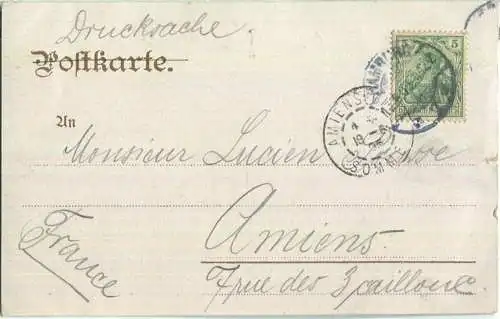 Drucksache
Postkarte.
5
An
AMIENS
SOMME
Monsieur Lucien
Amiens.
7 rue des 3 cailloux
France